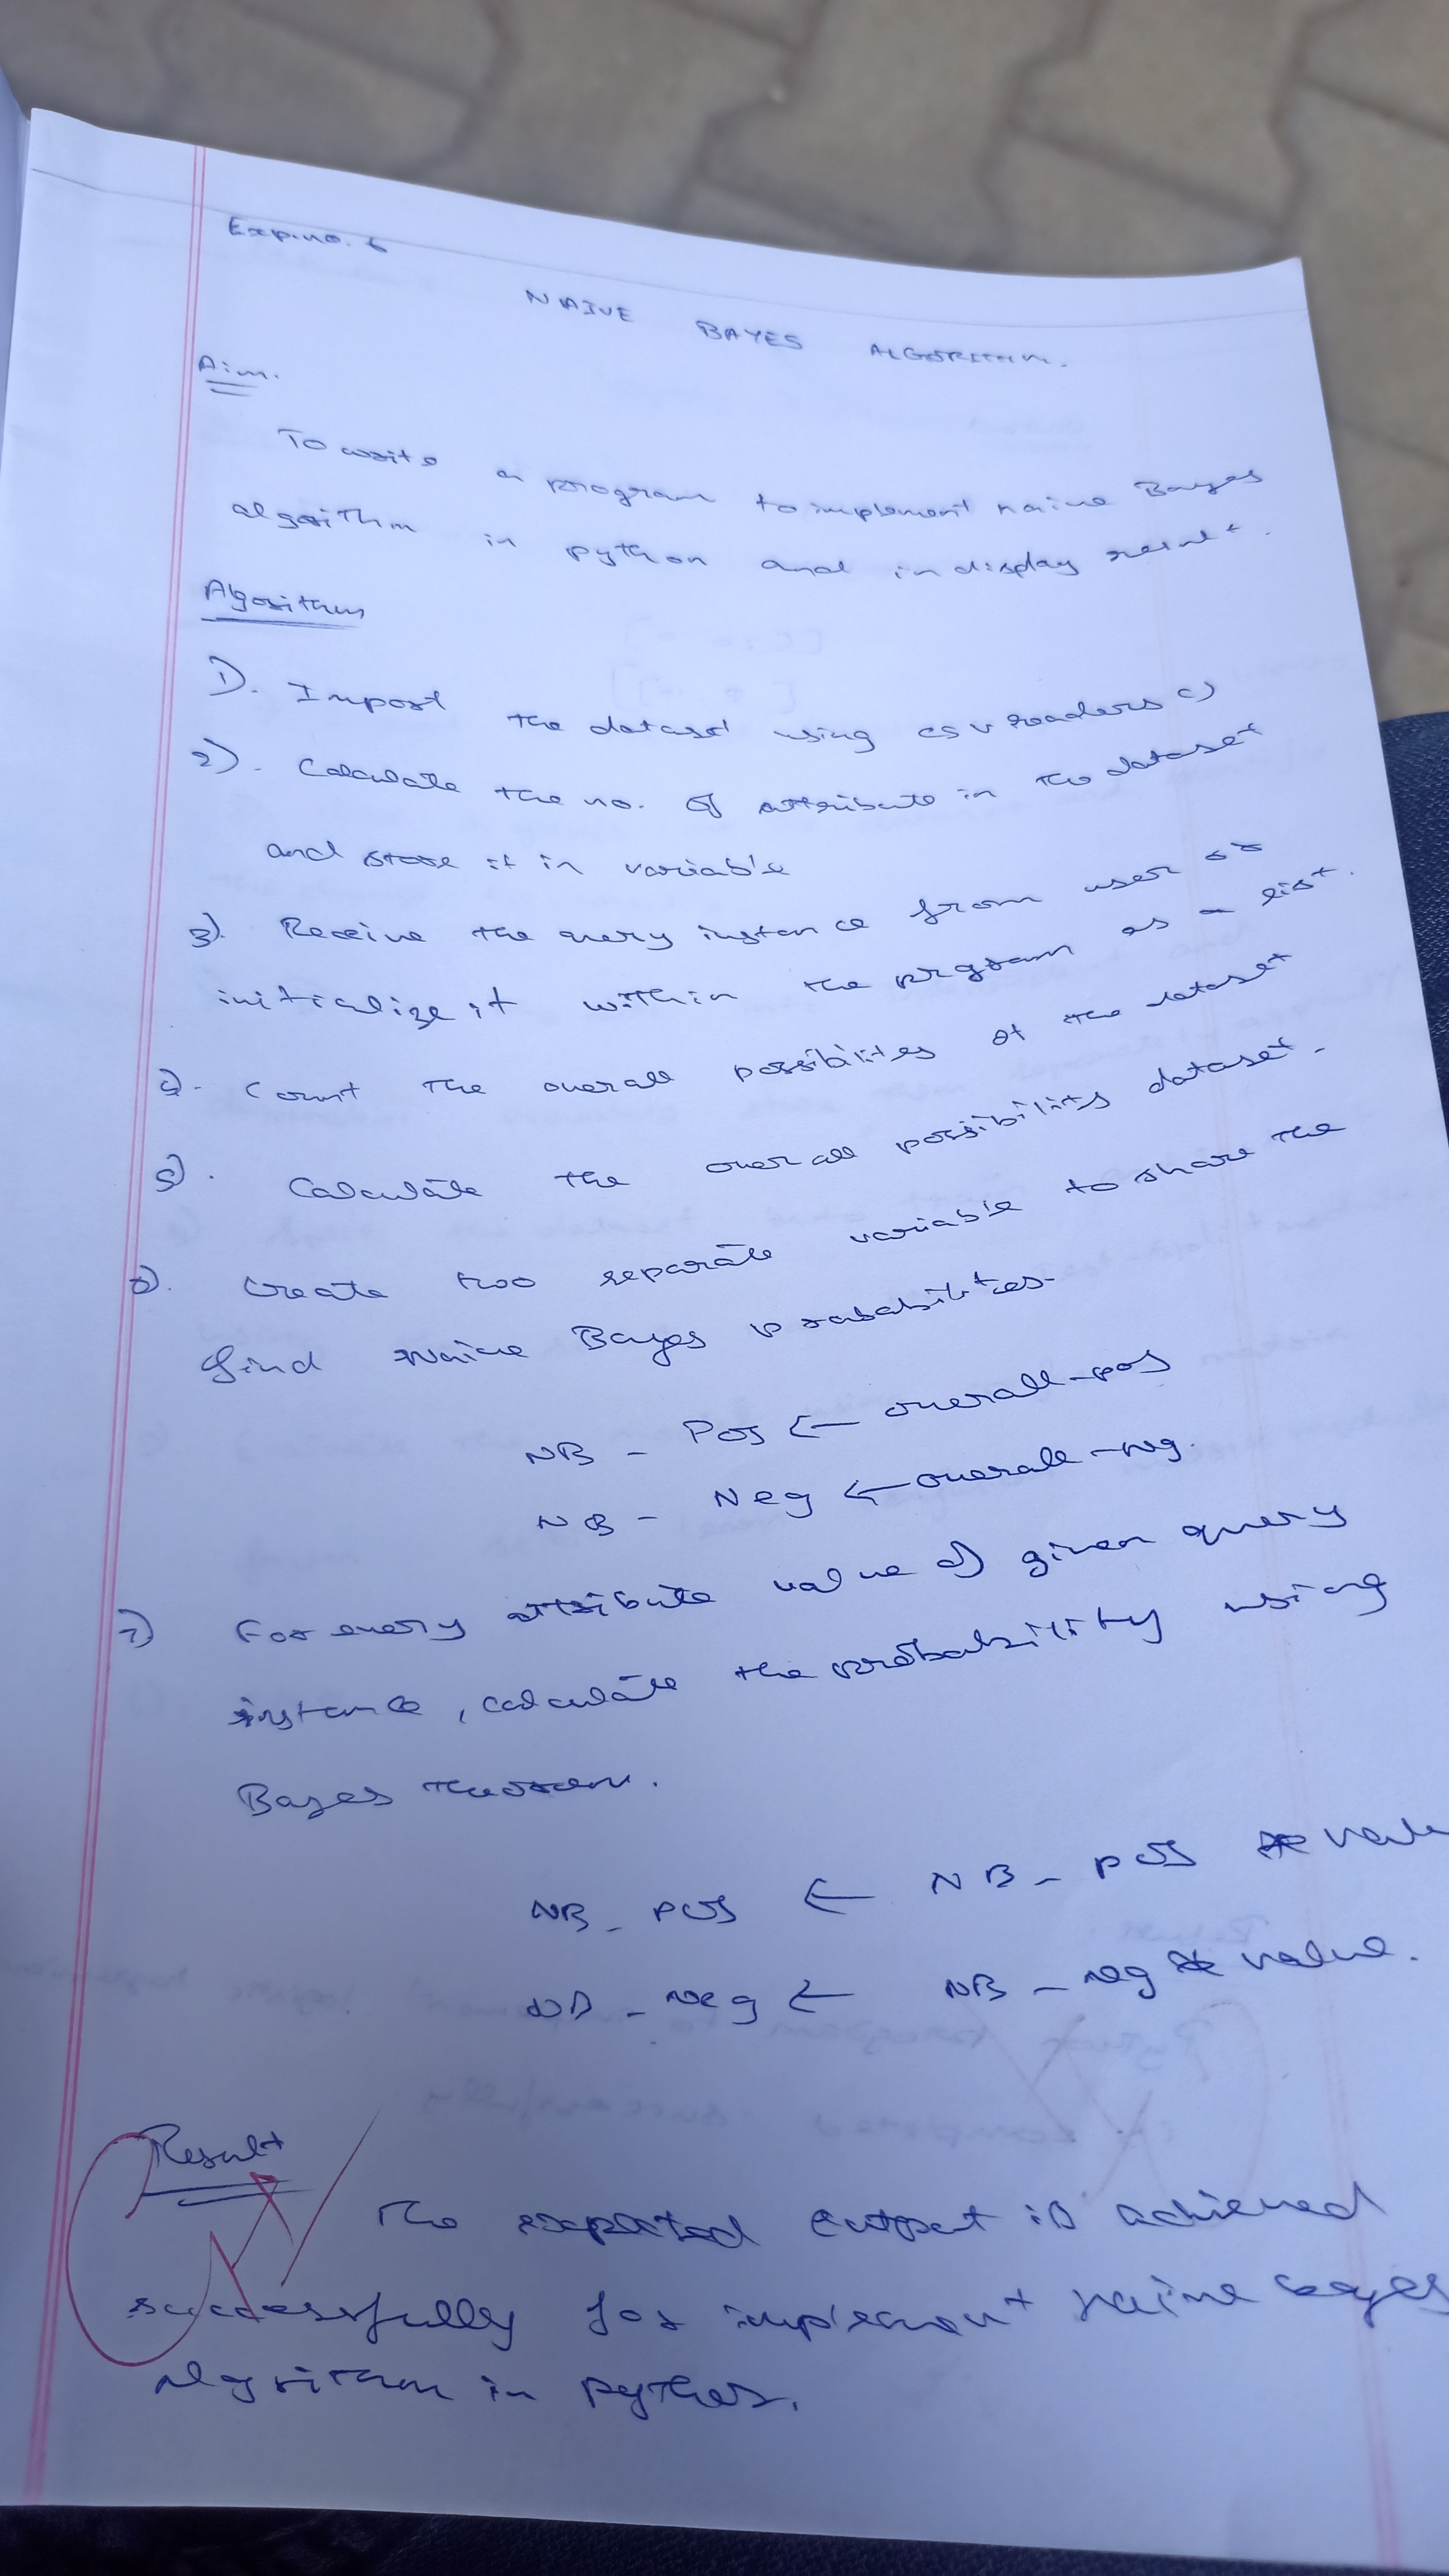 Exp.no. 6
NAIVE BAYES ALGORITHM.
Aim.
To write a program to implement naive Bayes
algorithm in python and in display result.
Algorithm
1). Import the dataset using csv readers()
2). Calculate the no. of attribute in the dataset
and store it in variable
3). Receive the query instance from user or
initialize it within the program as a list.
4). Count the overall possibilites of the dataset
5). Calculate the overall possibility dataset.
6). Create two separate variable to share the
find Naive Bayes probabilites.
NB - Pos ← overall-pos
NB - Neg ← overall-neg.
7) For every attribute value of given query
instance, calculate the probability using
Bayes theorem.
NB_pos ← NB_pos * value
NB_neg ← NB_neg * value.
Result
The expected output is achieved
successfully for implement naive bayes
algorithm in python.